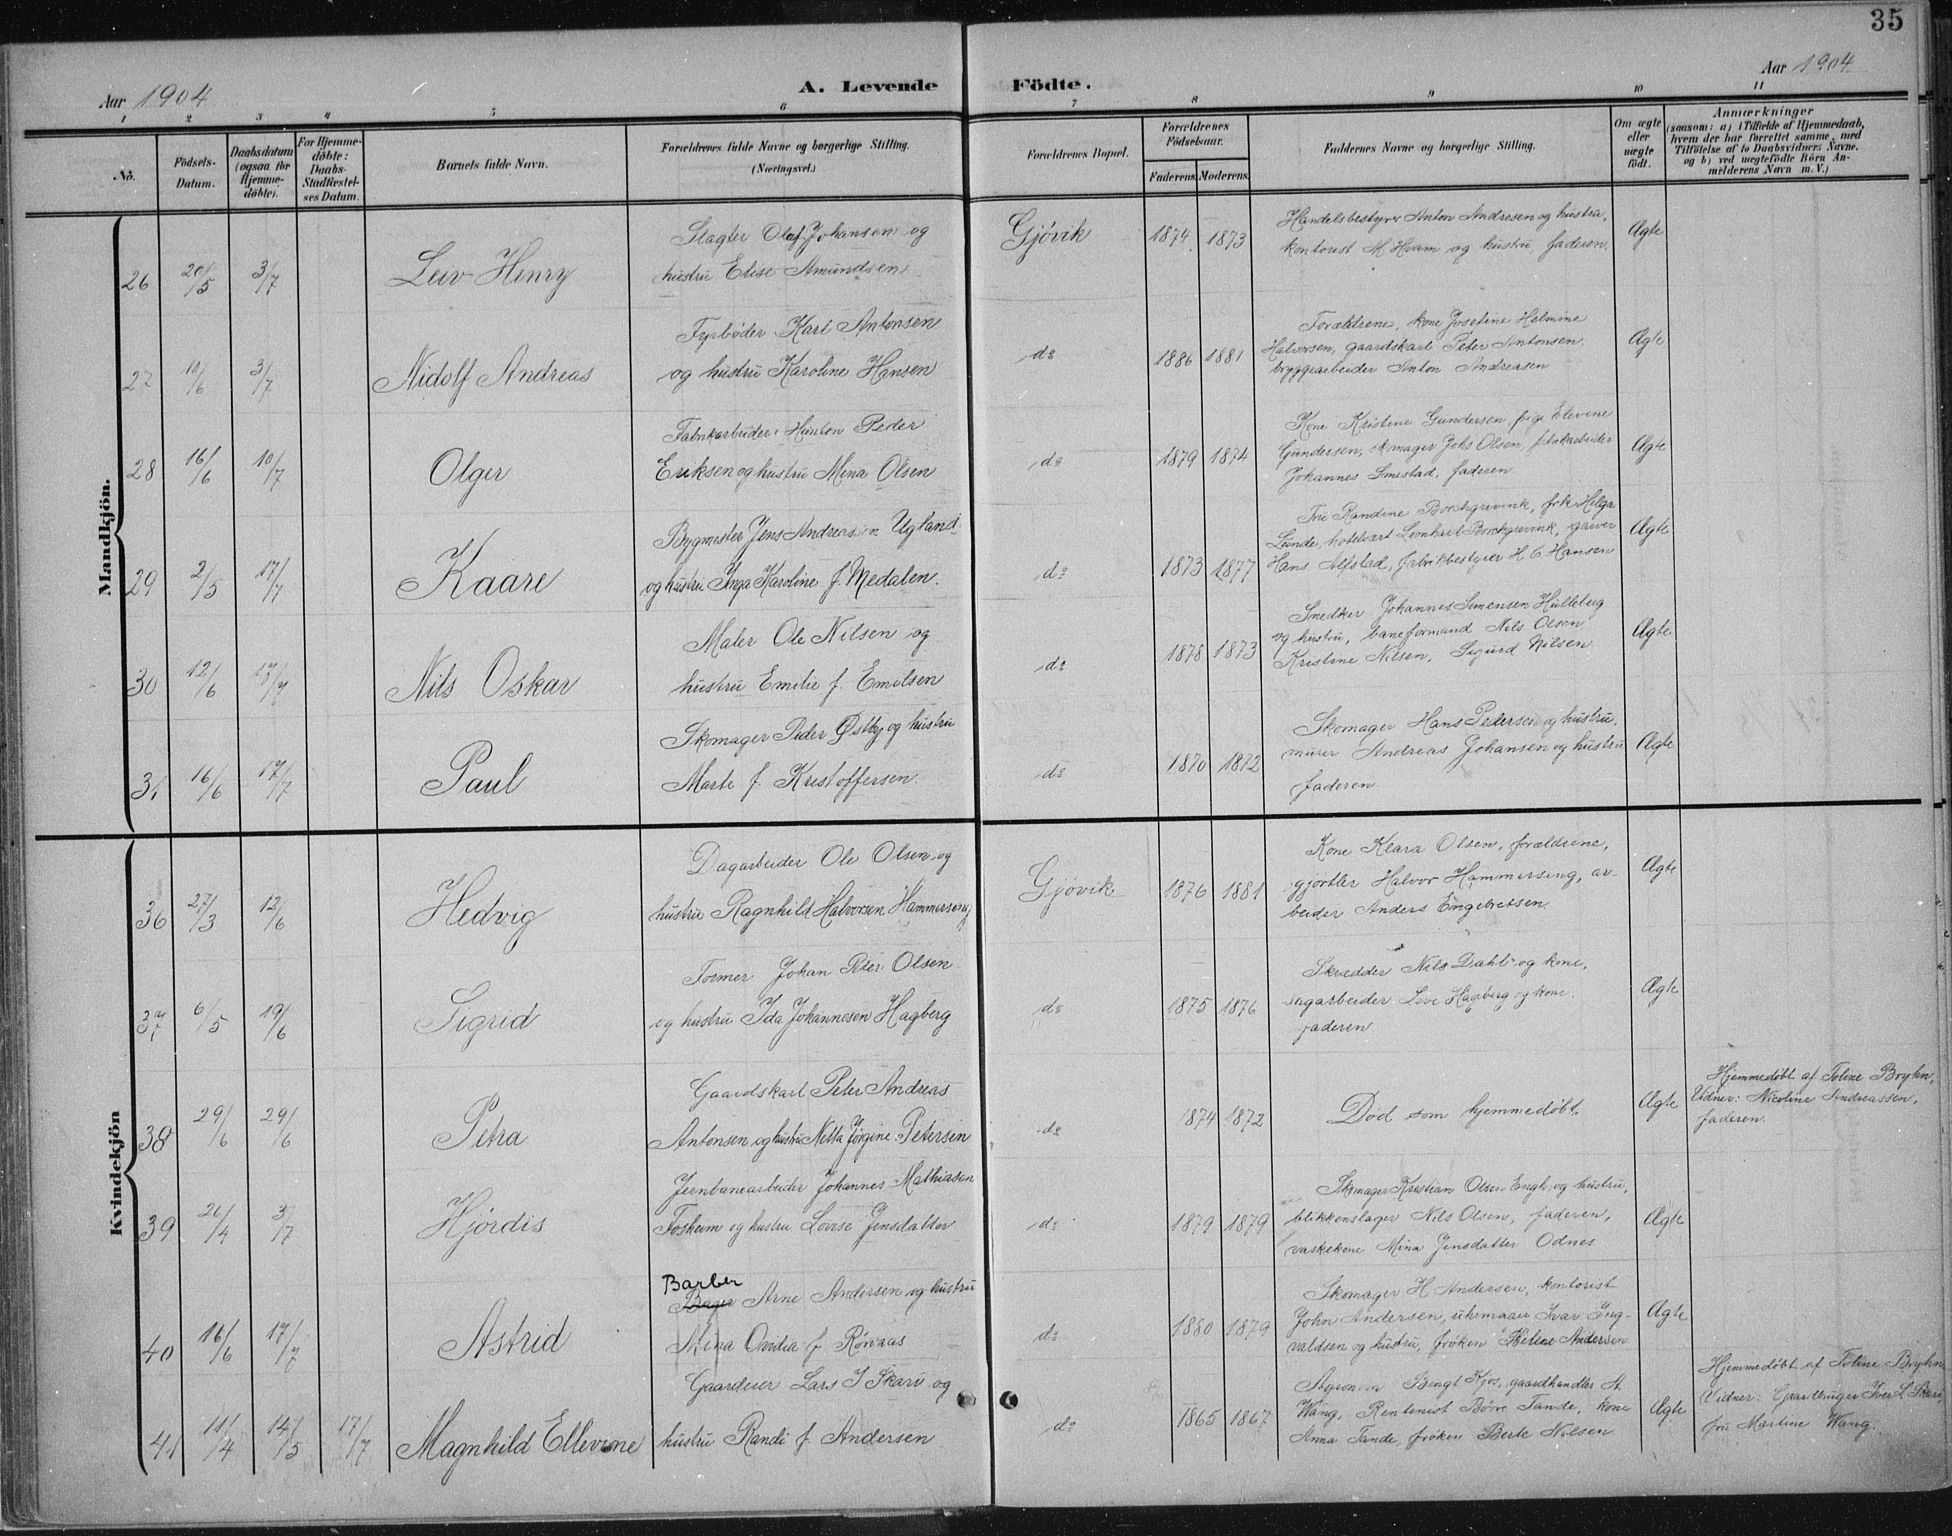 35
Aar 1904
A. Levende Födte.
Aar 1904
1 2 3 4 5 6 7 8 9 10 11
No.
Födsels-Datum.
Daabsdatum (ogsaa for Hjemme-döbte).
For Hjemme-döbte: Daabs-Stadfæstel-ses Datum.
Barnets fulde Navn.
Forældrenes fulde Navne og borgerlige Stilling.
(Næringsvei.)
Forældrenes Bopæl.
Forældrenes Födselsaar.
Faderens. Moderens.
Faddernes Navne og borgerlige Stilling.
Om ægte eller uægte födt.
Anmærkninger
(saasom: a) i Tilfælde af Hjemmedaab,
hvem der har forrettet samme, med
Tilföielse af to Daabsvidners Navne.
og b) ved uægtefödte Börn An-
melderens Navn m. V.)
Mandkjön.
26 20/5 3/7 Leiv Henry
Slagter Olaf Johansen og
hustru Elise Amundsen
Gjövik 1874 1873
Handelsbestyrer Anton Andresen og hustru,
kontorist M. Hvam og hustru, faderen.
Ægte
27 10/6 3/7 Nidolf Andreas
Fyrböder Karl Antonsen
og hustru Karoline Hansen
do 1886 1881
Forældrene, kone Josefine Helmine
Halvorsen, gaardskarl Peter Antonsen,
bryggearbeider Anton Andreasen
Ægte
28 16/6 10/7 Olger
Fabrikarbeider i Hunton Peder
Eriksen og hustru Mina Olsen
do 1879 1874
Kone Kristine Gundersen, pige Elevine
Gundersen, skomager Johs Olsen, fabrikarbeider
Johannes Smestad, faderen.
Ægte
29 2/5 17/7 Kaare
Bygmester Jens Andreasen Ugland
og hustru Inga Karoline f. Medalen.
do 1873 1877
Fru Randine Borchgrevink, frk Helga
Lunde, hotelvært Leonhart Borchgrevink, garver
Hans Alfstad, fabrikbestyrer H. C. Hansen
Ægte
30 12/6 17/7 Nils Oskar
Maler Ole Nilsen og
hustru Emilie f. Emilsen
do 1878 1873
Snedker Johannes Simensen Hulleberg
og hustru, baneformand Nils Olsen
Kristine Nilsen, Sigurd Nilsen
Ægte
31 16/6 17/7 Paul
Skomager Peder Østby og hustru
Marte f. Kristoffersen.
do 1870 1872
Skomager Hans Pedersen og hustru,
murer Andreas Johansen og hustru
faderen.
Ægte
Kvindekjön
36 27/3 12/6 Hedvig
Dagarbeider Ole Olsen og
hustru Ragnhild Halvorsen Hammerseng
Gjövik 1876 1881
Kone Klara Olsen, forældrene,
gjörtler Halvor Hammerseng, ar-
beider Anders Engebretsen.
Ægte
37 6/5 19/6 Sigrid
Former Johan Peter Olsen
og hustru Ida Johannesen Hagberg
do 1875 1876
Skrædder Nils Dahl og kone,
sagarbeider Hagberg og kone,
faderen
Ægte
38 29/6 29/6 Petra
Gaardskarl Peter Andreas
Antonsen og hustru Netta Jørgine Petersen
do 1874 1872
Död som hjemmedöbt.
Ægte
Hjemmedöbt af Toline Bryhn,
Vidner: Nicoline Andreassen,
faderen.
39 26/4 3/7 Hjørdis
Jernbanearbeider Johannes Mathiasen
Fosheim og hustru Lovise Jensdatter
do 1879 1879
Skomager Kristian Olsen Engh og hustru,
blikkenslager Nils Olsen, faderen,
vaskekone Mina Jensdatter Odnes
Ægte
40 16/6 17/7 Astrid
Barber
Bager Arne Andersen og hustru
Mina Ovidia f. Rønaas
do 1880 1879
Skomager H. Andersen, kontorist
John Andersen, uhrmager Ivar Ing-
valdsen og hustru, fröken Helene Andersen
Ægte
41 11/4 14/5 17/7 Magnhild Ellevine
Gaardeier Lars I Skari og
hustru Randi f. Andersen
do 1865 1867
Agronom Bengt Kjos, gaardhandler A.
Wang, Rentenist Børre Tande, kone
Anna Tande, frøken Berte Nilsen
Ægte
Hjemmedöbt af Toline Bryhn
Vidner: Gaardbruger Iver L. Skari,
fru Martine Wang.